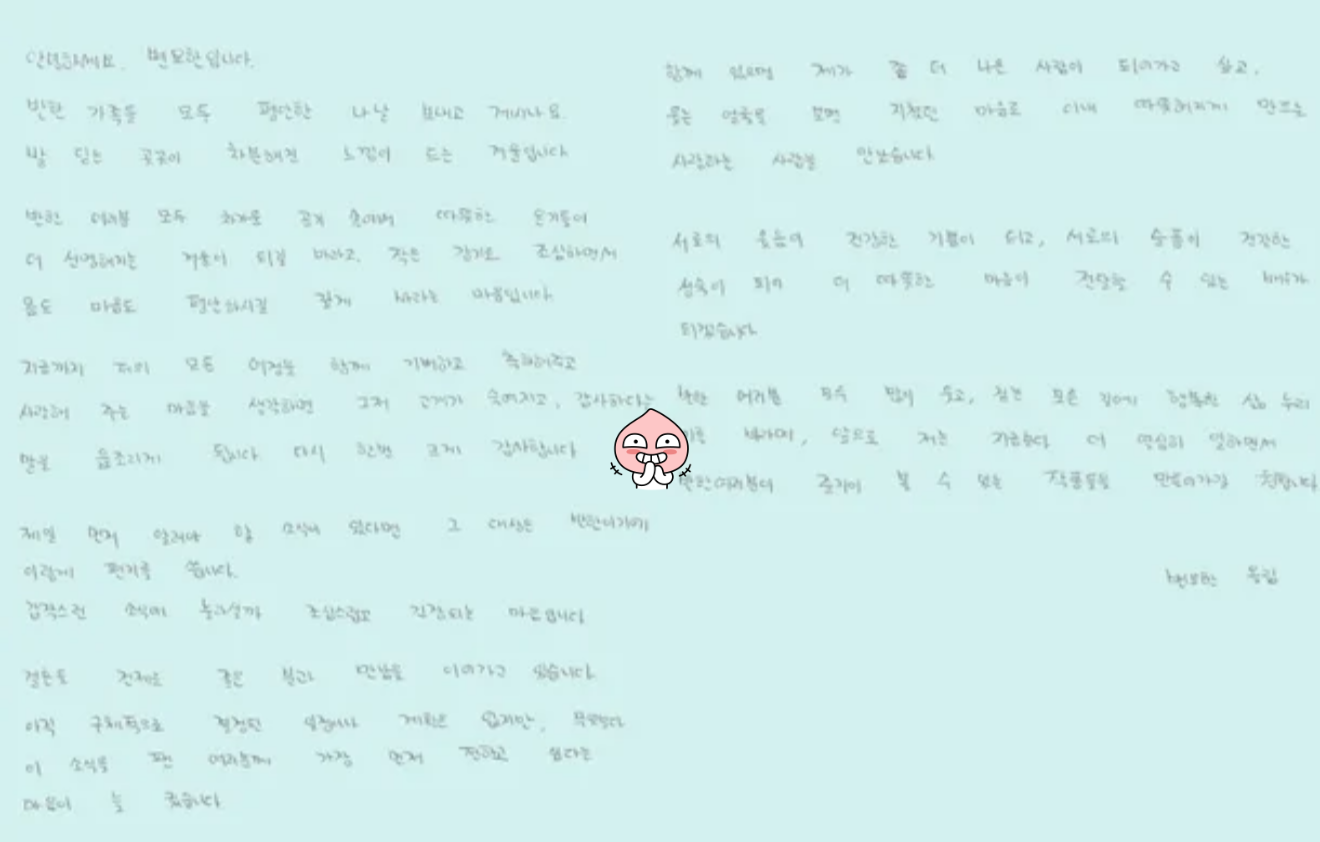 안녕하세요. 변요한입니다.
반한 가족들 모두 평안한 나날 보내고 계시나요.
발 딛는 곳곳이 차분해진 느낌이 드는 겨울입니다
반한 여러분 모두 차가운 공기 속에서 따뜻한 온기들이
더 선명해지는 겨울이 되길 바라고, 작은 감기도 조심하면서
몸도 마음도 평안하시길 깊게 바라는 마음입니다
지금까지 저의 모든 여정을 함께 기뻐하고 축하해주고
사랑해 주는 마음을 생각하면 그저 고개가 숙여지고, 감사하다는
말을 읊조리게 됩니다 다시 한번 크게 감사합니다
제일 먼저 알려야 할 소식이 있다면 그 대상은 반한이기에
이렇게 편지를 씁니다.
갑작스런 소식에 놀라실까 조심스럽고 긴장되는 마음입니다
결혼을 전제로 좋은 분과 만남을 이어가고 있습니다.
아직 구체적으로 결정된 일정이나 계획은 없지만, 무엇보다
이 소식을 팬 여러분께 가장 먼저 전하고 싶다는
마음이 늘 컸습니다
함께 있으면 제가 좀 더 나은 사람이 되어가고 싶고,
웃는 얼굴을 보면 지쳤던 마음도 이내 따뜻해지게 만드는
사랑하는 사람을 만났습니다
서로의 웃음이 건강한 기쁨이 되고, 서로의 슬픔이 건강한
성숙이 되어 더 따뜻한 마음이 전달될 수 있는 배우가
되겠습니다
반한 여러분 모두 많이 웃고, 걷는 모든 길에 행복한 삶 누리
바라며, 앞으로 저는 지금보다 더 열심히 일하면서
반한여러분이 즐거이 볼 수 있는 작품들을 만들어가길
변요한 올림